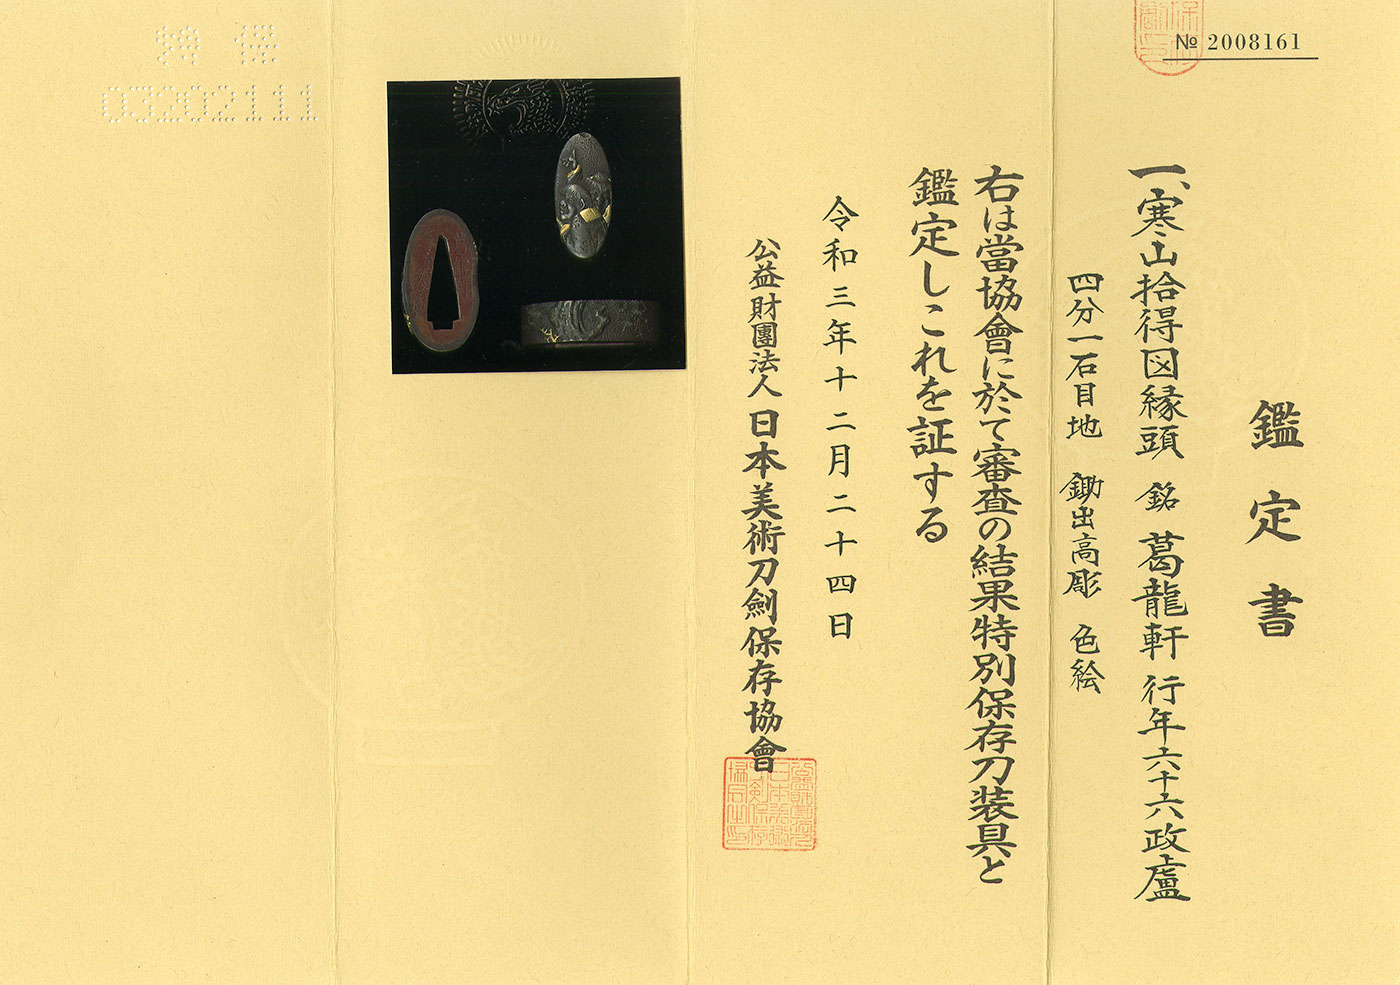 № 2008161
鑑定書
一、寒山拾得図縁頭 銘 葛龍軒 行年六十六政盧
四分一石目地 鋤出高彫 色絵
右は當協會に於て審査の結果特別保存刀装具と
鑑定しこれを証する
令和三年十二月二十四日
公益財團法人 日本美術刀劍保存協會
03202111